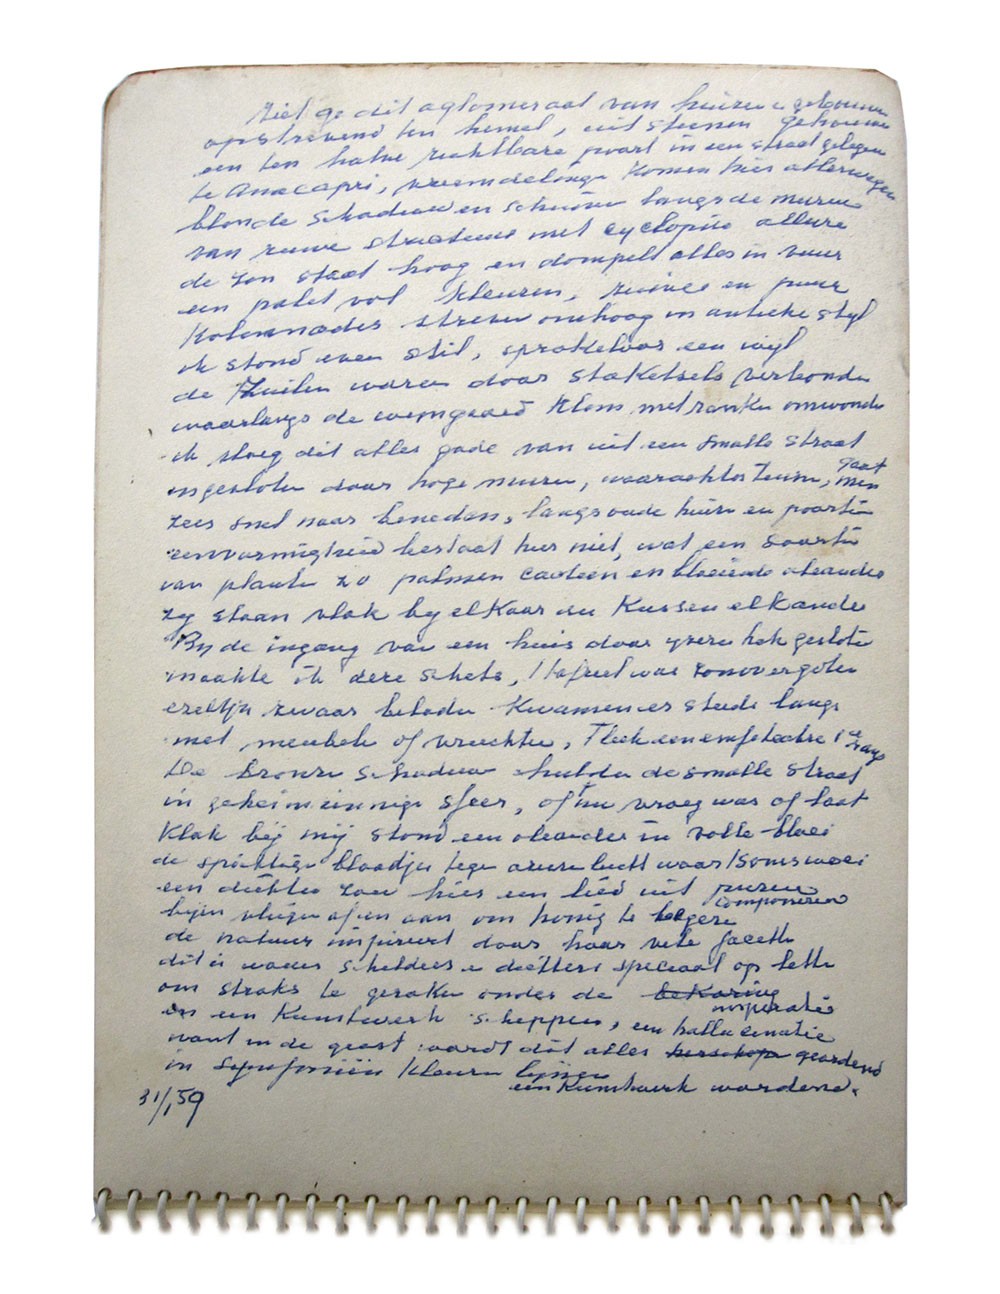 Ziet ge dit aglomeraat van huizen e gebouwen
opstrevend ten hemel, uit steenen gehouwen
een ten halve zichtbare poort in een straat gelegen
te Anacapri, vreemdelinge komen hier allerwegen
blonde schaduwen schuiven langs de muren
van ruwe structuur met cyclopise allure
de zon staat hoog en dompelt alles in vuur
een palet vol kleuren, zuiver en puur
Kolonnades streven omhoog in antieke styl
ik stond even stil, sprakeloos een wyl
de Zuilen waren door staketsels verbonden
waarlangs de wyngaard klom, met ranken omwonden
ik sloeg dit alles gade van uit een smalle straat
ingesloten door hoge muren, waarachter tuinen, gaat men
zeer snel naar beneden, langs oude huizen en poorten
eenvormigheid bestaat hier niet, wat een soorten
van planten zo palmen cacteen en bloeiende oleanders
zy staan vlak by elkaar en kussen elkander
By de ingang van een huis door yzeren hek gesloten
maakte ik deze schets, 't tafreel was zonovergoten
ezeltjes zwaar beladen kwamen er steeds langs
met meubels of vruchten, 't leek een 1e rangs
De bronze schaduw hulde de smalle straat
in geheimzinnige sfeer, of 't nu vroeg was of laat
Vlak bij mij stond een oleander in volle bloei
de blaadjes tegen azuren lucht waar soms
een dichter zou hier een lied uit puren componeren
bijen vliegen af en aan om honig te
de natuur inspireert door haar vele facetten
dit is voor schilders e dichters speciaal op te letten
om straks te geraken onder de bekoring inspiratie
en een Kunstwerk scheppen, een hallucinatie
want in de geest wordt dit alles herschapen geordend
in Symfoniën kleuren lijnen
een Kunstwerk wordend.
31/1 59